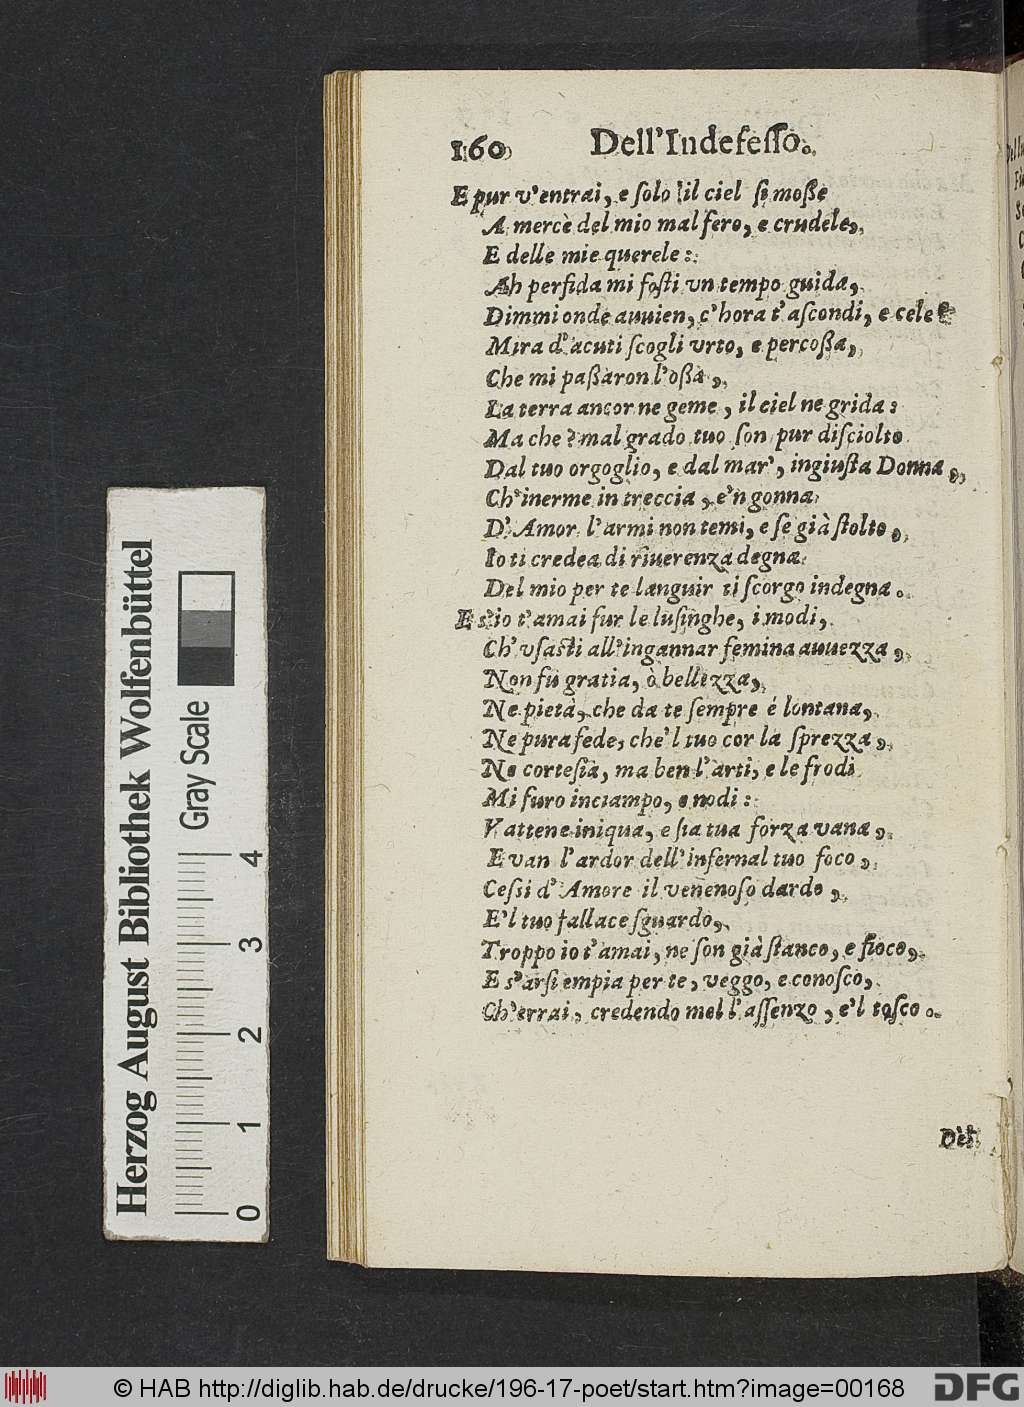 160 Dell'Indefeſſo.
E pur v'entrai, e ſolo il ciel ſi moße
A mercè del mio mal fero, e crudele,
E delle mie querele:
Ah perfida mi foſti vn tempo guida,
Dimmi onde auuien, c'hora t'aſcondi, e cele
Mira d'acuti ſcogli vrto, e percoßa,
Che mi paßaron l'oßa,
La terra ancor ne geme, il ciel ne grida:
Ma che? mal grado tuo ſon pur diſciolto
Dal tuo orgoglio, e dal mar', ingiuſta Donna,
Ch'inerme in treccia, e'n gonna
D'Amor l'armi non temi, e ſe già ſtolto,
Io ti credea di riuerenza degna
Del mio per te languir ti ſcorgo indegna.
E s'io t'amai fur le luſinghe, i modi,
Ch'vſaſti all'ingannar femina auuezza,
Non fù gratia, ò bellezza,
Ne pietà, che da te ſempre é lontana,
Ne pura fede, che'l tuo cor la ſprezza,
Ne corteſia, ma ben l'arti, e le frodi
Mi furo inciampo, e nodi:
Vattene iniqua, e ſia tua forza vana,
E van l'ardor dell'infernal tuo foco,
Ceſſi d'Amore il venenoſo dardo,
E'l tuo fallace ſguardo,
Troppo io t'amai, ne ſon già ſtanco, e fioco,
E s'arſi empia per te, veggo, e conoſco,
Ch'errai, credendo mel l'aſſenzo, e'l toſco.
Herzog August Bibliothek Wolfenbüttel
Gray Scale
0 1 2 3 4
© HAB http://diglib.hab.de/drucke/196-17-poet/start.htm?image=00168
DFG